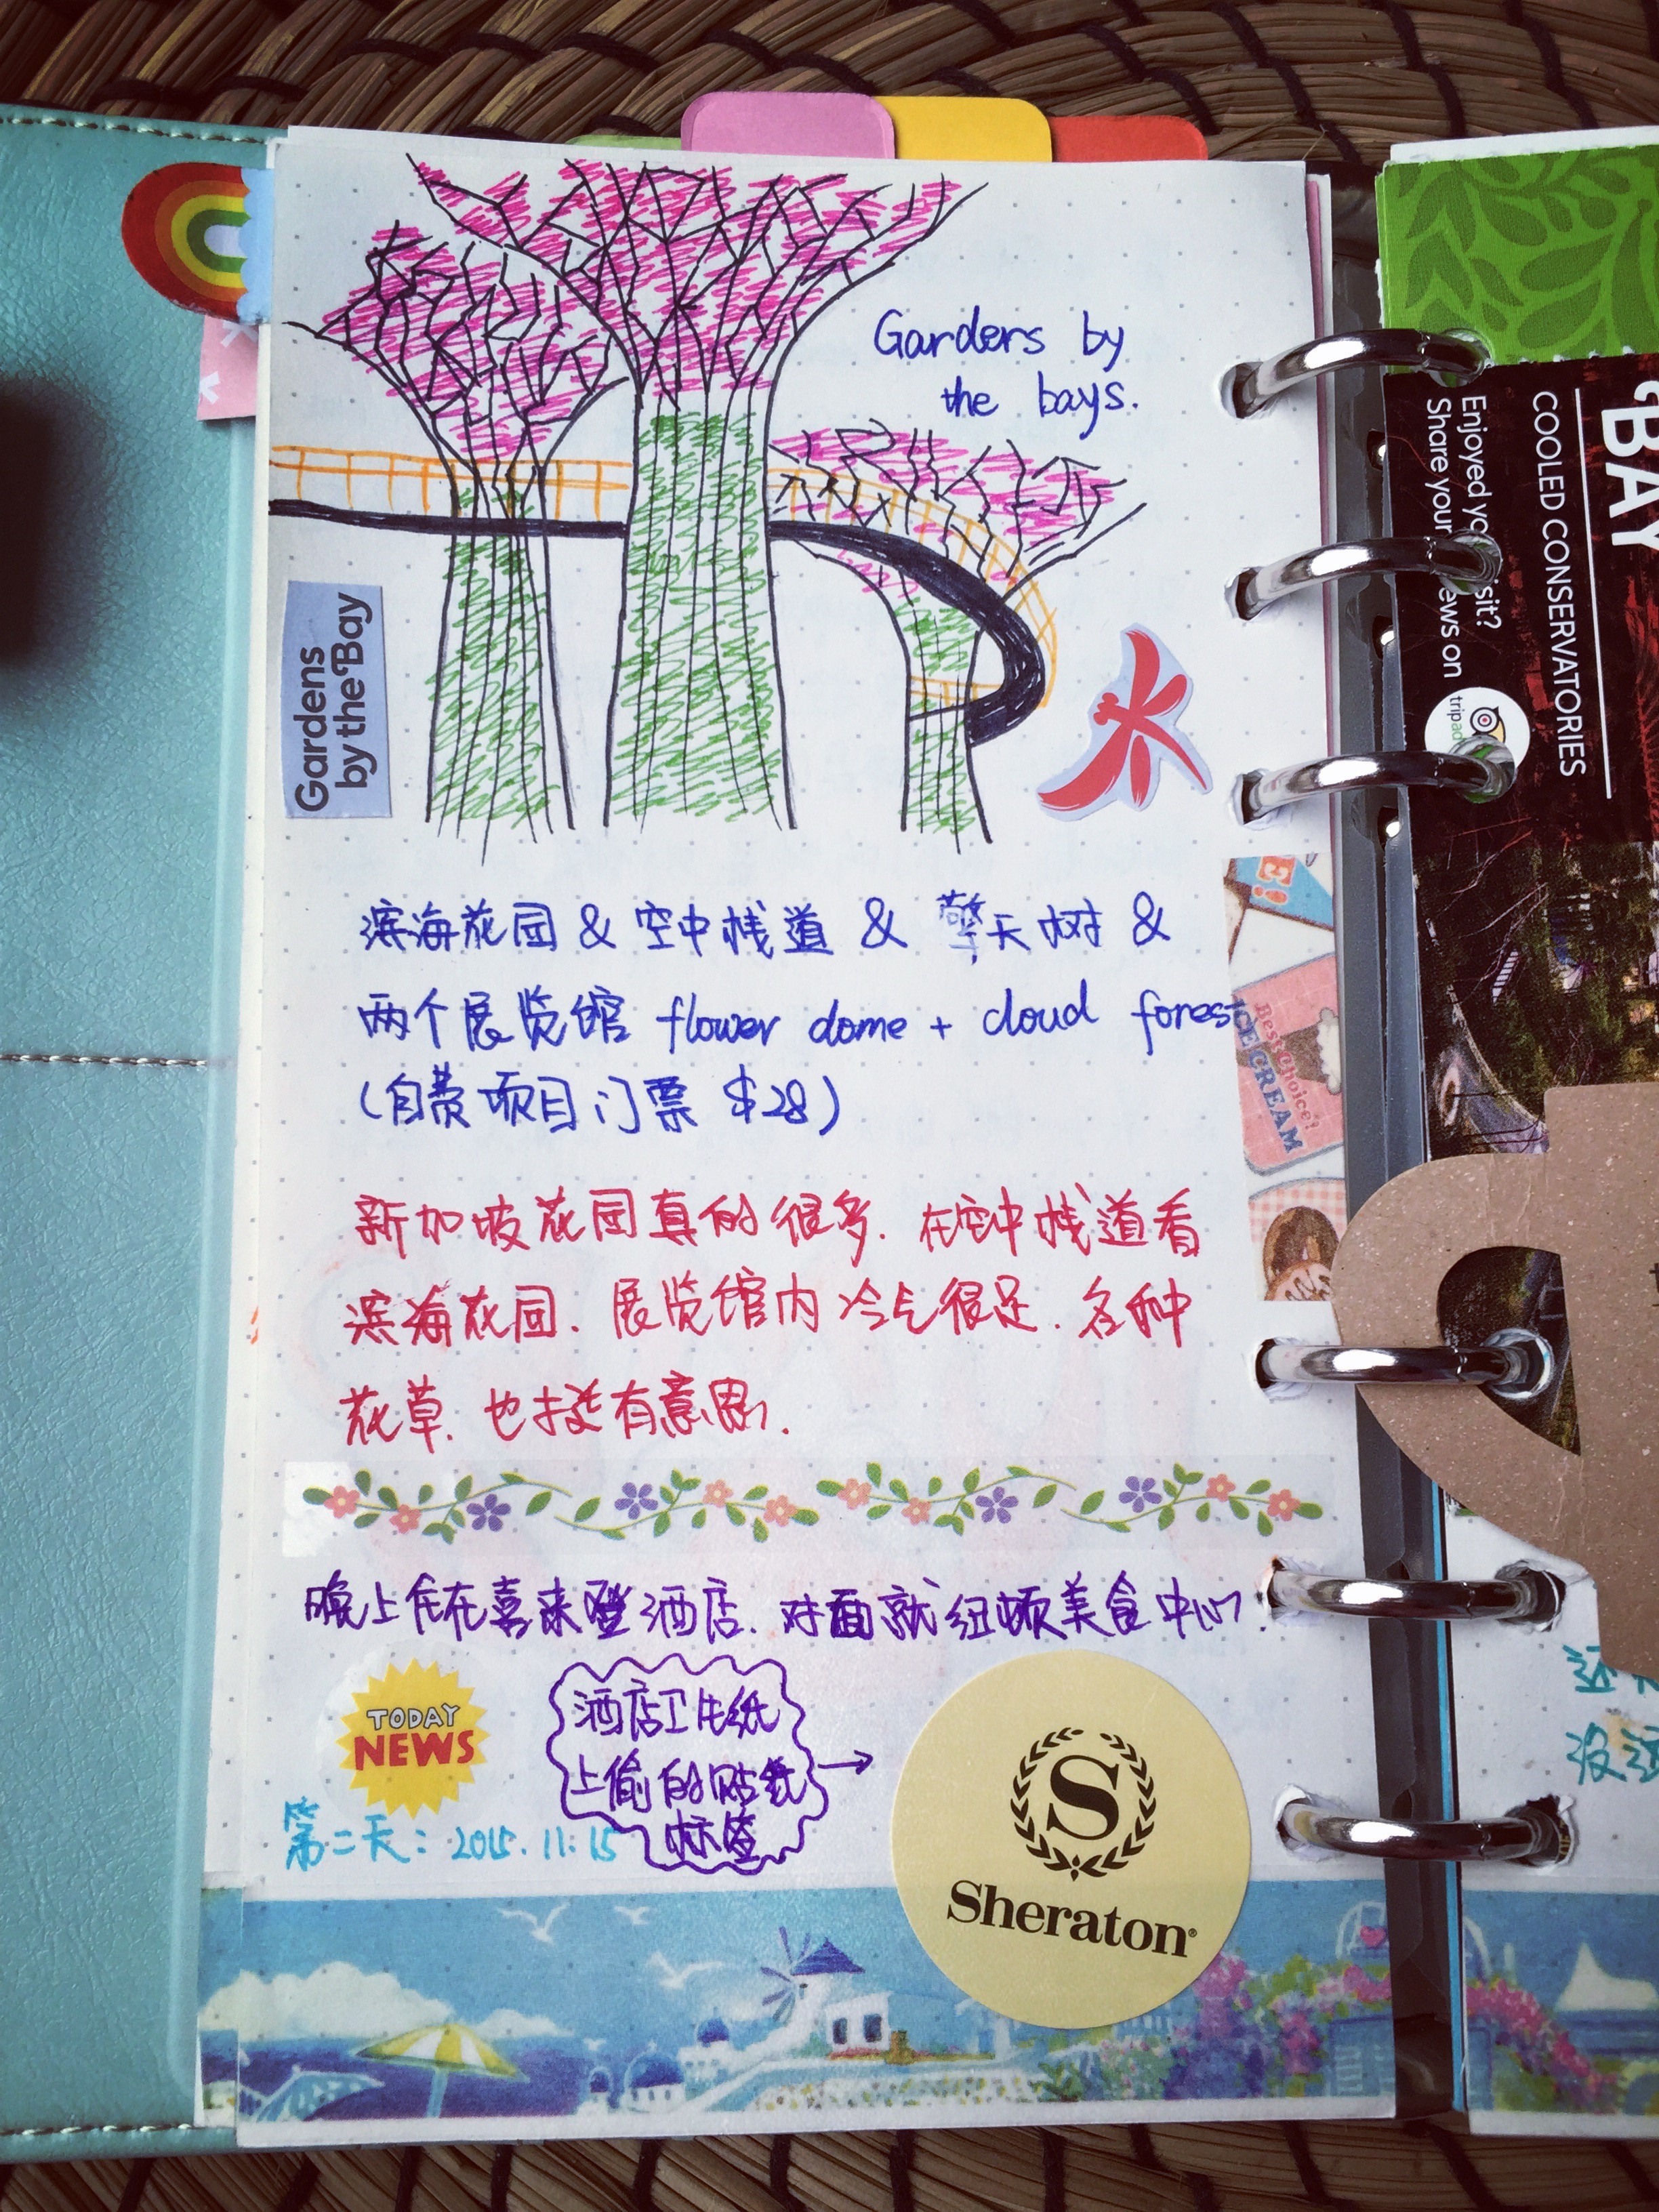 Garders by
the bays.
Gardens
by the Bay
滨海花园 & 空中栈道 & 擎天树 &
两个展览馆 flower dome + cloud forest
(自费项目门票 $28)
新加坡花园真的很多. 在空中栈道看
滨海花园. 展览馆内冷气很足. 各种
花草. 也挺有意思.
晚上住在喜来登酒店. 对面就纽顿美食中心.
TODAY
NEWS
酒店卫生纸
上偷的贴纸
标签
→
第二天: 2015. 11: 15
S
Sheraton
Best Choice!
ICE CREAM
BAY
COOLED CONSERVATORIES
Enjoyed
Share your
ews on